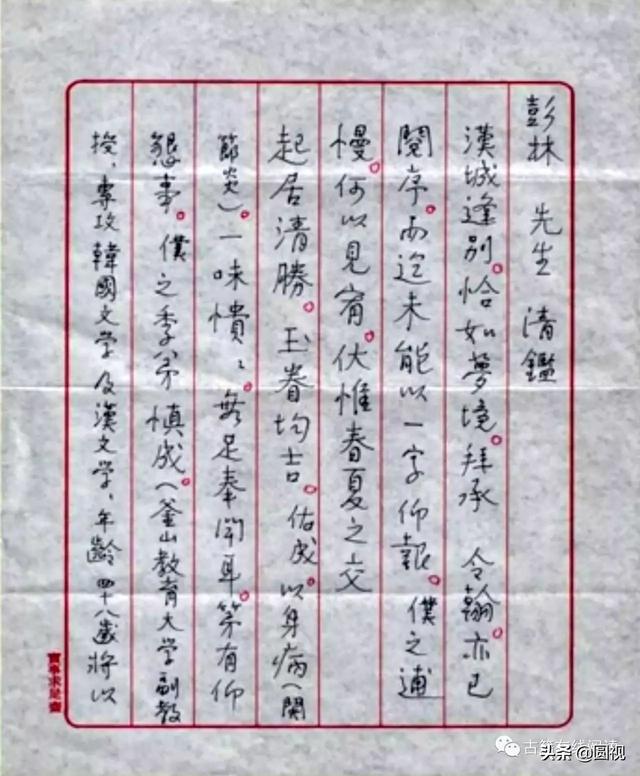 彭林 先生 清鑑
漢城逢別。恰如夢境。拜承 令翰。亦已
閱序。而迄未能以一字仰報。僕之逋
慢。何以見宥。伏惟春夏之交
起居清勝。玉眷均吉。佑成。以身病(関
節炎)。一味憒〻。無足奉聞耳。第有仰
懇事。僕之季弟 慎成。(釜山教育大学副教
授、專攻韓國文学及漢文学、年齡四十八歲將以
實事求是齋
古籍在线阅读
头条 @圆视